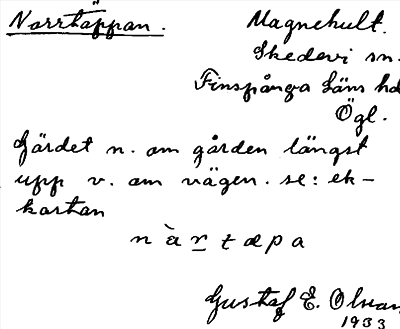 Norrtäppan.
Magnehult.
Skedevi sn.
Finspånga Läns hd
Ögl.
Gärdet n. om gården längst
upp v. om vägen. se: ek-
kartan
nàrtæpa
Gustaf E. Olsson
1933